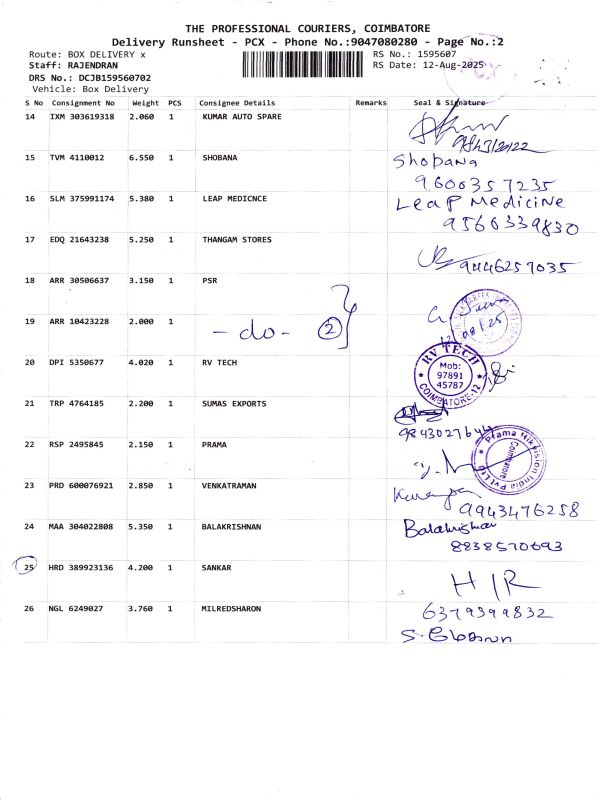 THE PROFESSIONAL COURIERS, COIMBATORE
Delivery Runsheet - PCX - Phone No.:9047080280 - Page No.:2
Route: BOX DELIVERY x RS No.: 1595607
Staff: RAJENDRAN RS Date: 12-Aug-2025
DRS No.: DCJB159560702
Vehicle: Box Delivery
S No Consignment No Weight PCS Consignee Details Remarks Seal & Signature
14 IXM 303619318 2.060 1 KUMAR AUTO SPARE
15 TVM 4110012 6.550 1 SHOBANA Shobana
9600357235
16 SLM 375991174 5.380 1 LEAP MEDICNCE Leap Medicine
9566339830
17 EDQ 21643238 5.250 1 THANGAM STORES
9446257035
18 ARR 30506637 3.150 1 PSR
19 ARR 10423228 2.000 1 - do - 2
08/25
20 DPI 5350677 4.020 1 RV TECH RV TECH
Mob:
97891
45787
COIMBATORE-12
21 TRP 4764185 2.200 1 SUMAS EXPORTS
22 RSP 2495845 2.150 1 PRAMA Prama Hikvision India Pvt Ltd
Coimbatore
23 PRD 600076921 2.850 1 VENKATRAMAN
9943476258
24 MAA 304022808 5.350 1 BALAKRISHNAN Balakrishnan
8838570693
25 HRD 389923136 4.200 1 SANKAR H/R
26 NGL 6249027 3.760 1 MILREDSHARON 6379399832